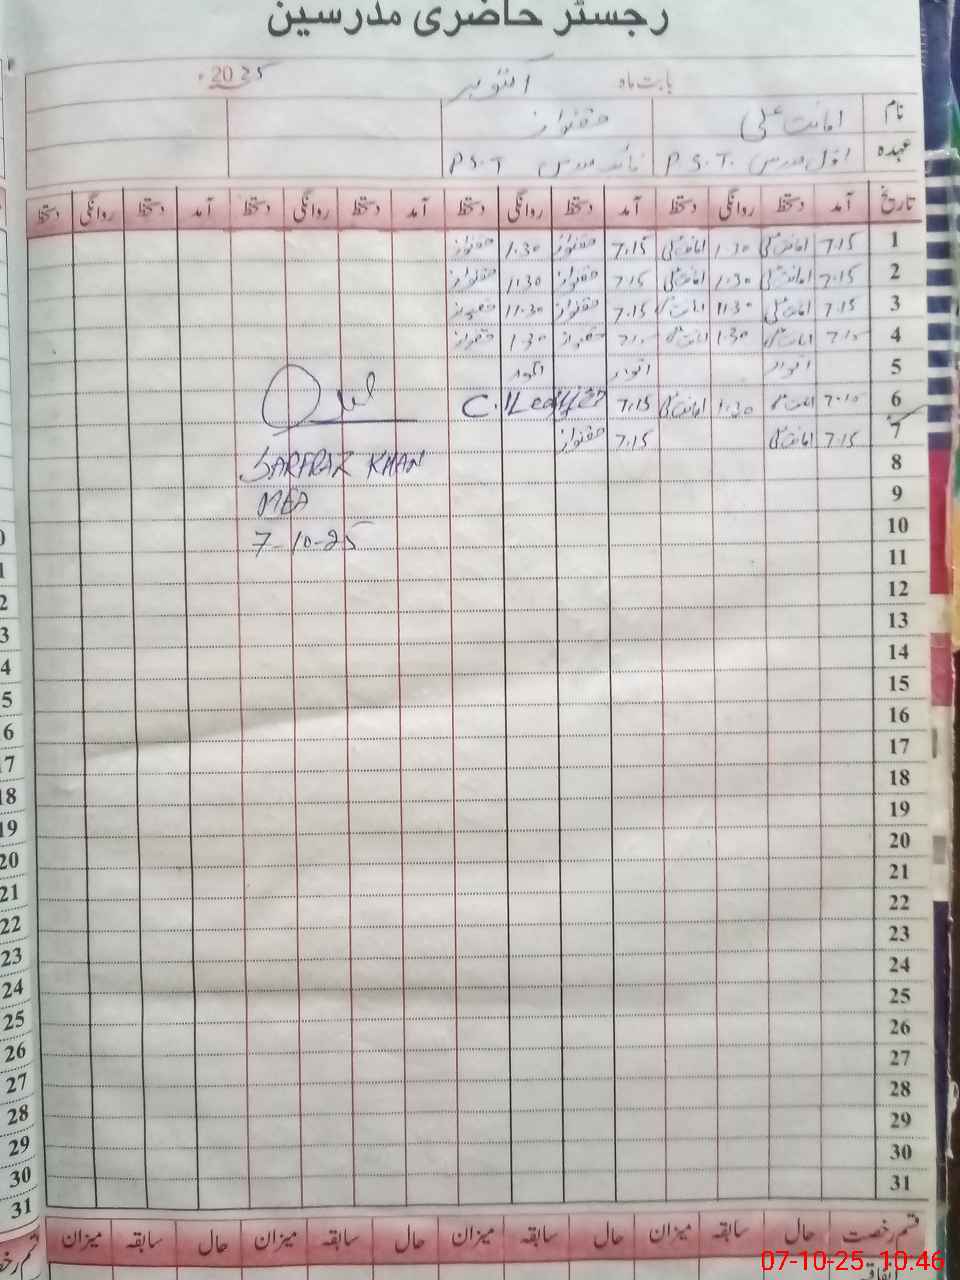 رجسٹر حاضری مدرسین
بابت ماہ اکتوبر 2025ء
نام امانت علی حقنواز
عہدہ اول مدرس P.S.T. نائب مدرس P.S.T
تاریخ آمد دستخط روانگی دستخط آمد دستخط روانگی دستخط آمد دستخط روانگی دستخط آمد دستخط روانگی دستخط
1 7.15 امانت علی 1.30 امانت علی 7.15 حقنواز 1.30 حقنواز
2 7.15 امانت علی 1.30 امانت علی 7.15 حقنواز 1.30 حقنواز
3 7.15 امانت علی 11.30 امانت علی 7.15 حقنواز 11.30 حقنواز
4 7.15 امانت علی 1.30 امانت علی 7.15 حقنواز 1.30 حقنواز
5 اتوار اتوار اتوار
6 7.15 امانت علی 1.30 امانت علی 7.15 C.
7 7.15 امانت علی 7.15 حقنواز
8 SARFRAZ KHAN
9 MEA
10 7-10-25
11
12
13
14
15
16
17
18
19
20
21
22
23
24
25
26
27
28
29
30
31
قسم رخصت حال سابقہ میزان حال سابقہ میزان حال سابقہ میزان حال سابقہ میزان
اتفاقیہ
07-10-25 10:46